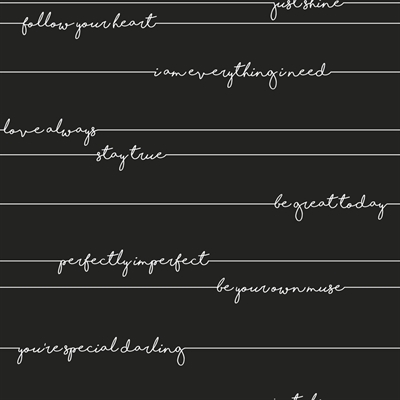 just shine
follow your heart
i am everything i need
love always
stay true
be great today
perfectly imperfect
be your own muse
you're special darling